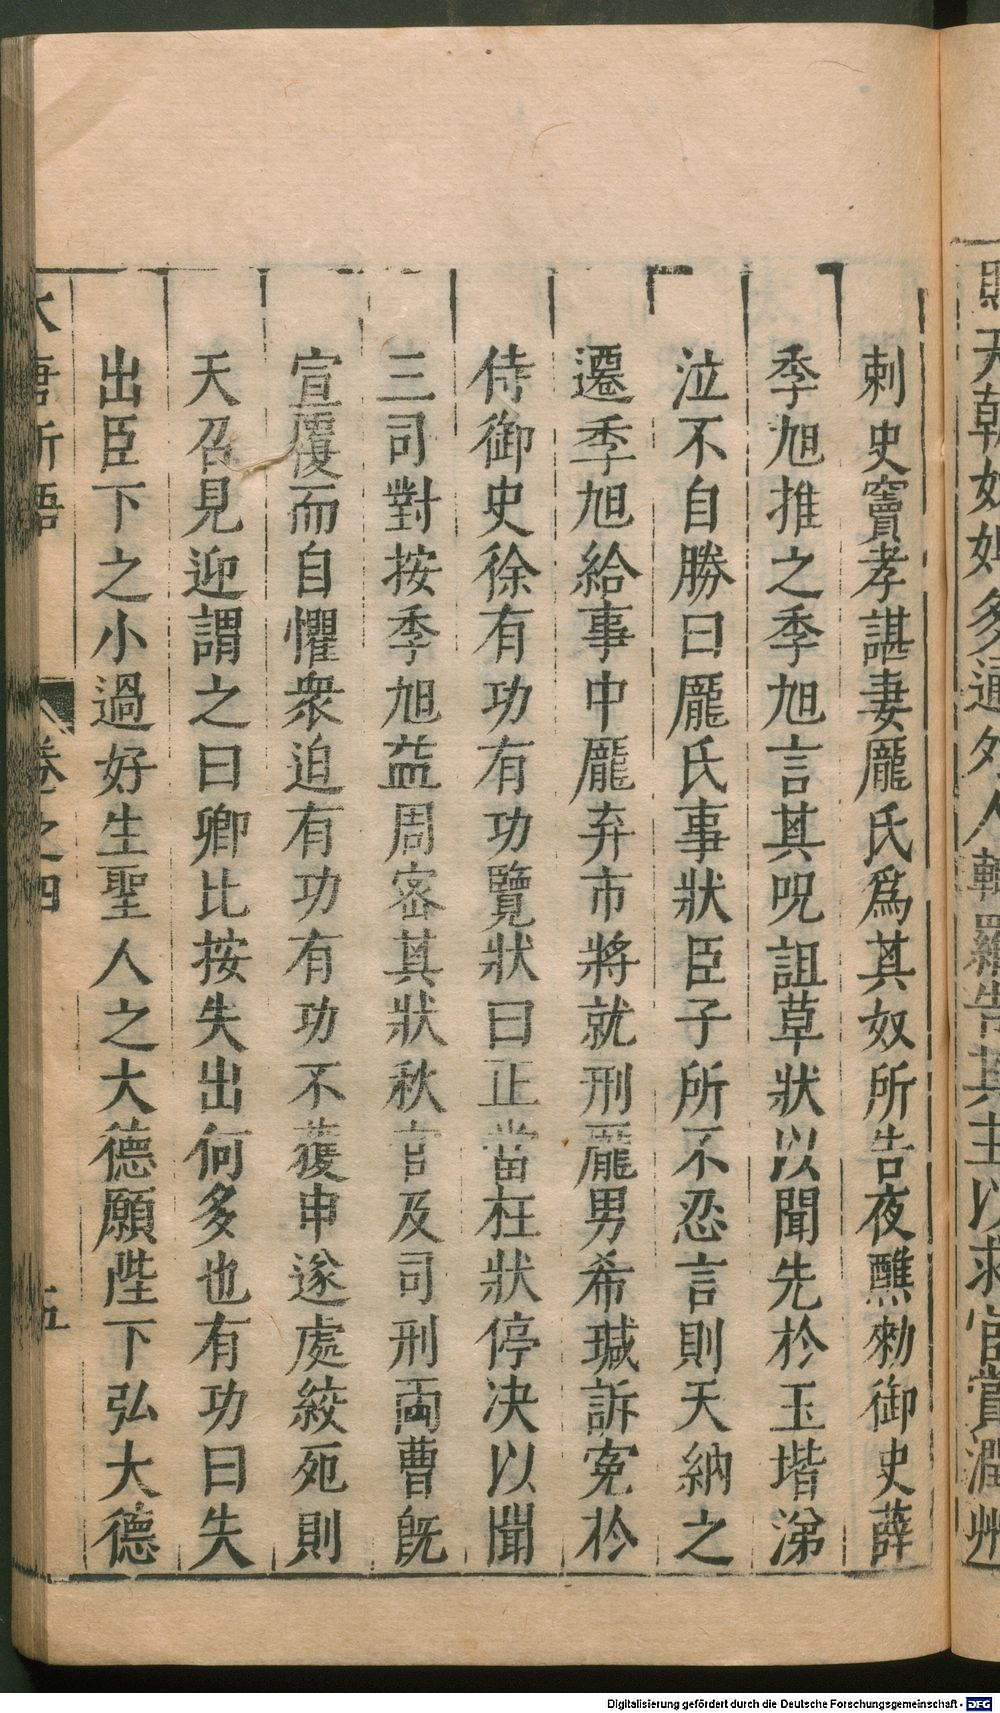 則天朝奴婢多通外人輒羅告其主以求官賞潤州
刺史竇孝諶妻龎氏爲其奴所告夜醮勑御史薛
季旭推之季旭言其呪詛草狀以聞先於玉堦涕
泣不自勝曰龎氏事狀臣子所不忍言則天納之
遷季旭給事中龎弃市將就刑龎男希瑊訴寃於
侍御史徐有功有功覽狀曰正當枉狀停决以聞
三司對按季旭益周宻其狀秋官及司刑两曹旣
宣覆而自懼衆迫有功有功不獲申遂處絞死則
天召見迎謂之曰卿比按失出何多也有功曰失
出臣下之小過好生聖人之大德願陛下弘大德
大唐新語 卷之四 五
Digitalisierung gefördert durch die Deutsche Forschungsgemeinschaft - DFG